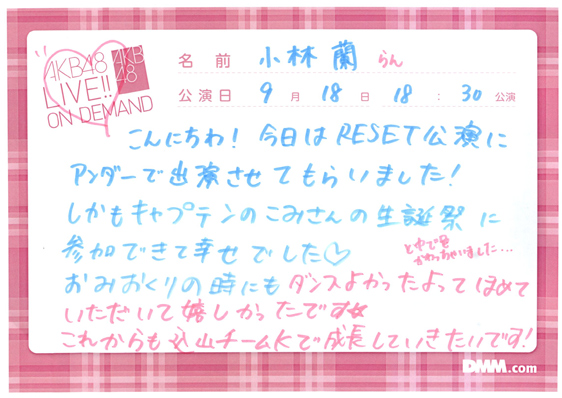 AKB48
LIVE!!
ON DEMAND
AKB
48
名前 小林 蘭 らん
公演日 9月18日 18:30公演
こんにちわ！今日はRESET公演に
アンダーで出演させてもらいました！
しかもキャプテンのこみさんの生誕祭に
参加できて幸せでした♡
とちゅうで色
かわっちゃいました…
おみおくりの時にもダンスよかったよってほめて
いただいて嬉しかったです☆
これからも込山チームKで成長していきたいです！
DMM.com